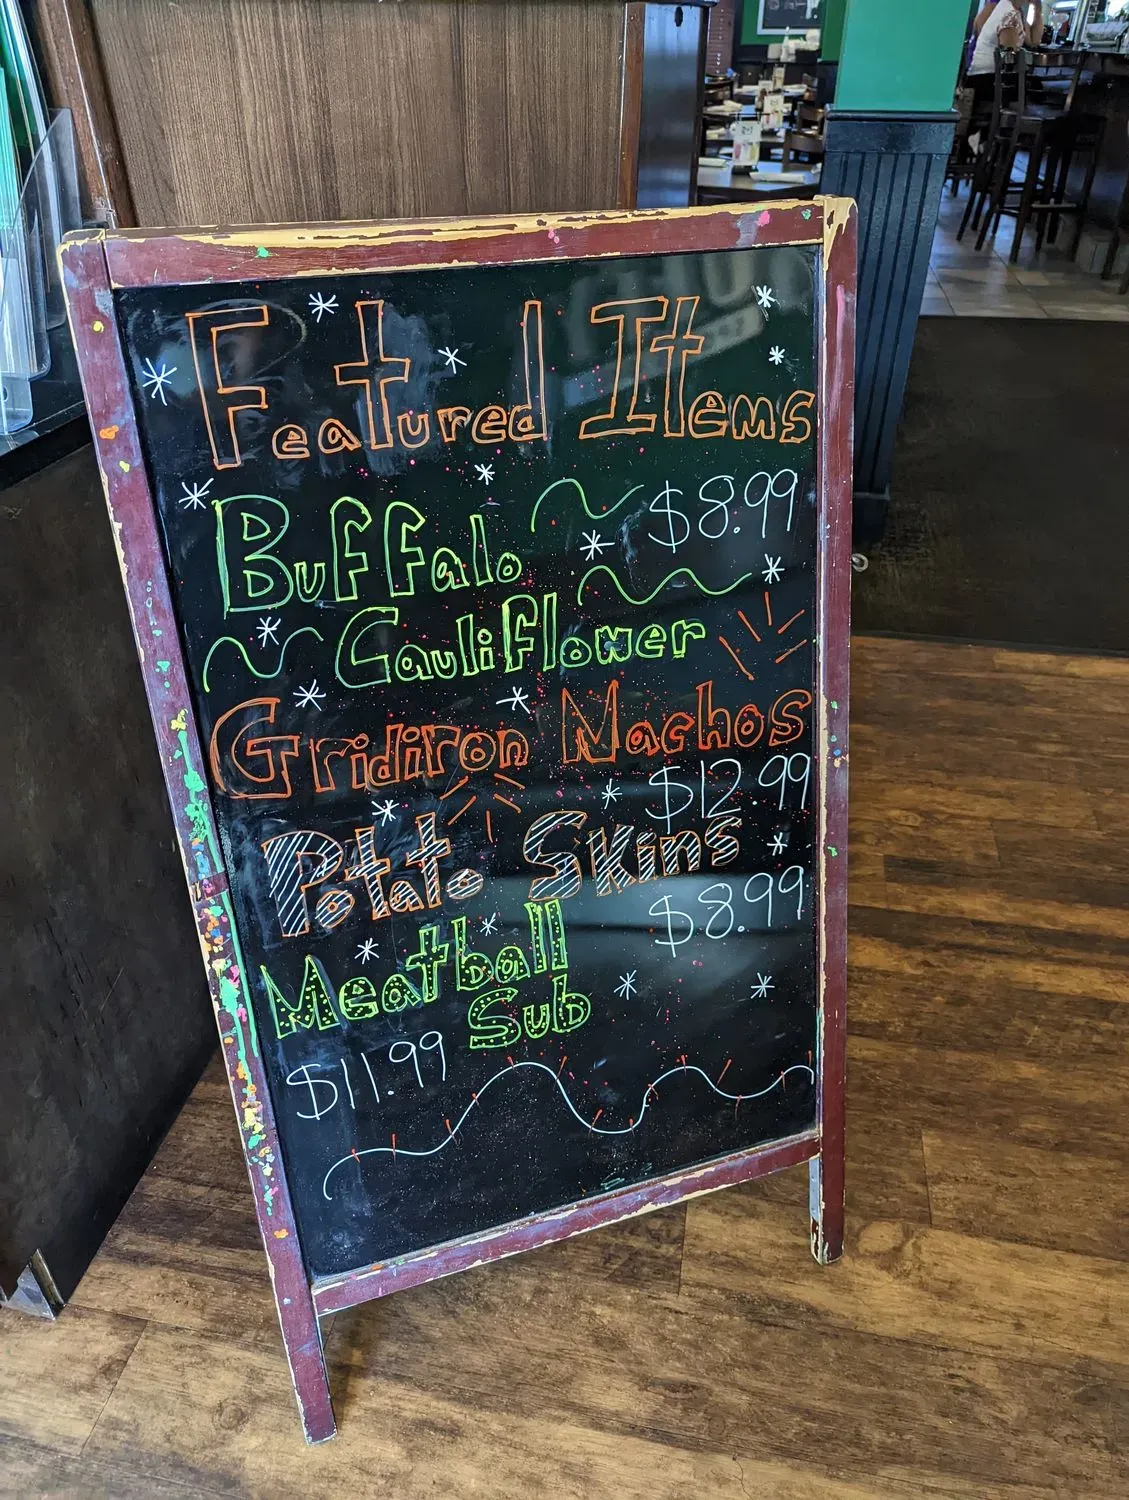 Featured Items
Buffalo $8.99
Cauliflower
Gridiron Nachos
$12.99
Potato Skins
$8.99
Meatball
Sub
$11.99